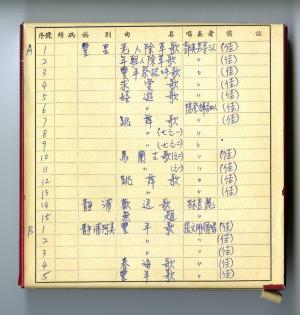 序號 轉碼 族別 曲名 唱奏者 備註
A 1 豐里 老人除草歌 (佳)
2 年輕人除草歌 〃 (佳)
3 豐年祭歌 〃 (佳)
4 求愛歌 〃 (佳)
5 嬉遊歌 〃 (佳)
6 〃 (佳)
7 跳舞歌 〃 (佳)
8 〃(七之一) 〃
9 〃(七之二) 〃
10 馬蘭古歌(之一) 〃 (佳)
11 〃 〃 (佳)
12 跳舞歌 〃 (佳)
13 〃 〃 (佳)
14 靜浦 歡送歌
15 無題 〃
B 1 靜浦阿美 豐年歌 (佳)
2 〃 〃 (佳)
3 〃 〃 (佳)
4 歌 〃 (佳)
5 豐年歌 〃 (佳)